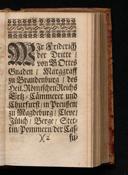 WIr Friderich
der Dritte /
von GOttes
Gnaden / Marggraff
zu Brandenburg / des
Heil. Römischen Reichs
Ertz-Cämmerer und
Churfürst / in Preussen /
zu Magdeburg / Cleve /
Jülich / Berge / Stet-
tin / Pommern der Cas-
su-